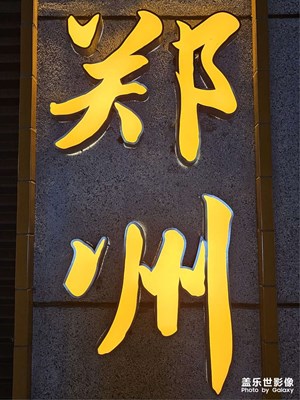 郑
州
盖乐世影像
Photo by Galaxy